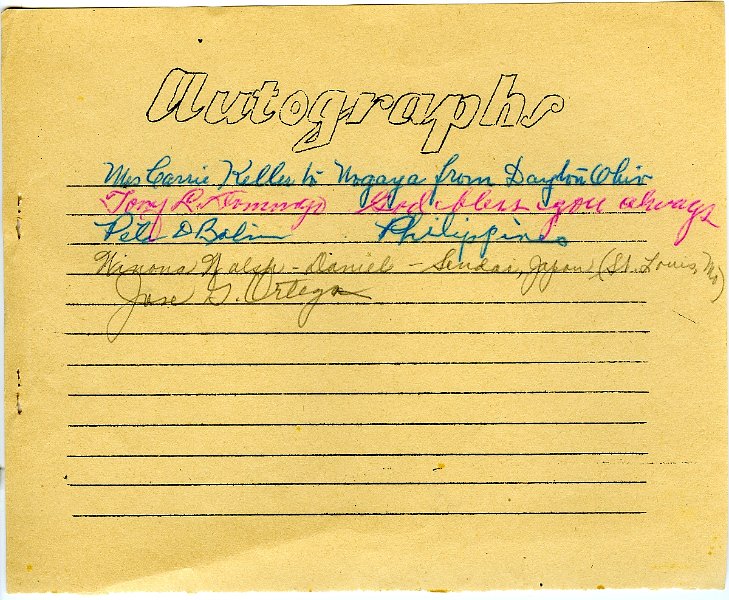 Autographs
Mrs Carrie Keller to Nogaya from Dayton Ohio
Tony God bless you always
Pete D Balin Philippines
Winona Walsh - Daniel - Sendai, Japan (St. Louis, Mo)
Jose G. Ortega